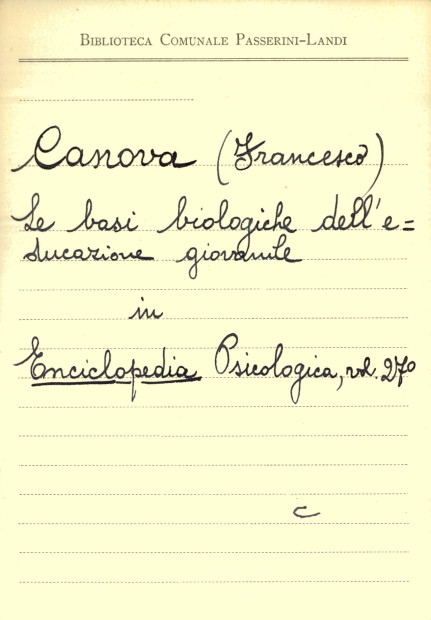 BIBLIOTECA COMUNALE PASSERINI-LANDI
Canova (Francesco)
Le basi biologiche dell'e=
ducazione giovanile
in
Enciclopedia Psicologica, vol. 2º
C